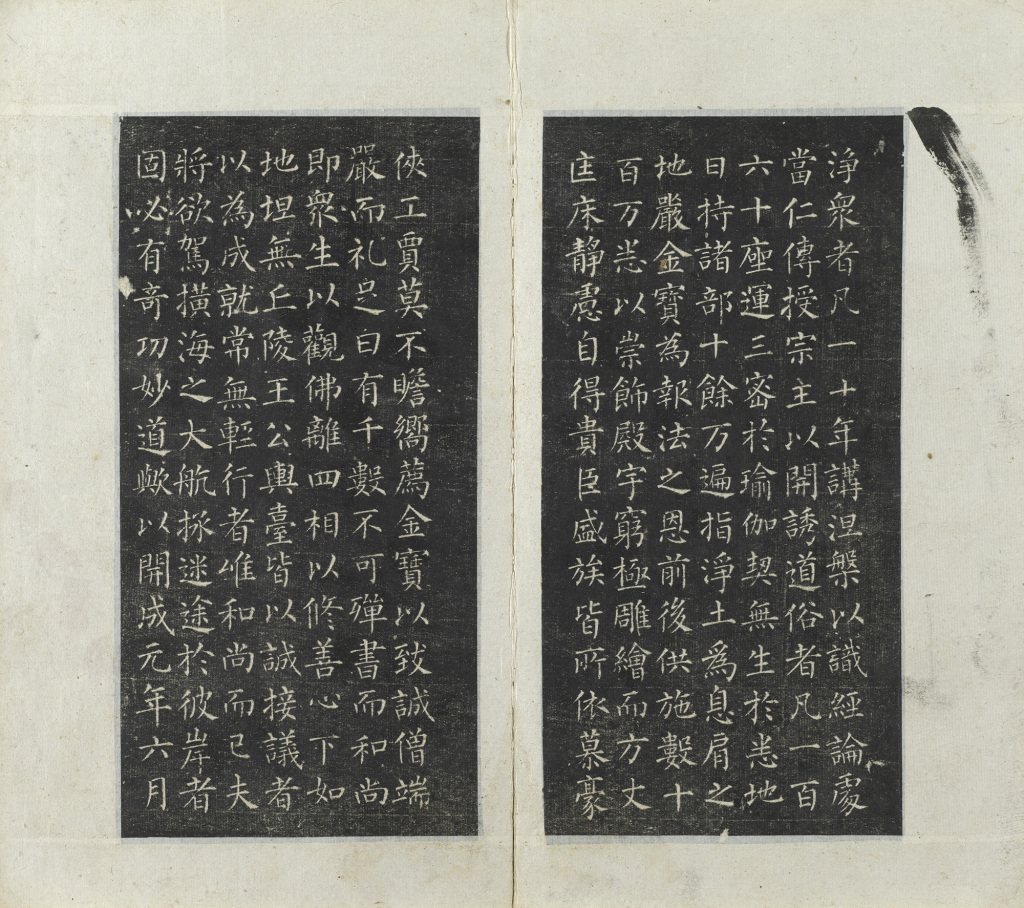 淨衆者凡一十年講涅槃以識經論處
當仁傳授宗主以開誘道俗者凡一百
六十座運三密於瑜伽契無生於悉地
日持諸部十餘万遍指淨土爲息肩之
地嚴金寶為報法之恩前後供施數十
百万悉以崇飾殿宇窮極雕繪而方丈
匡床靜慮自得貴臣盛族皆所依慕豪
俠工賈莫不瞻嚮薦金寶以致誠僧端
嚴而礼足日有千數不可殫書而和尚
即衆生以觀佛離四相以修善心下如
地坦無丘陵王公輿臺皆以誠接議者
以為成就常無輕行者唯和尚而已夫
將欲駕橫海之大航拯迷途於彼岸者
固必有奇功妙道歟以開成元年六月